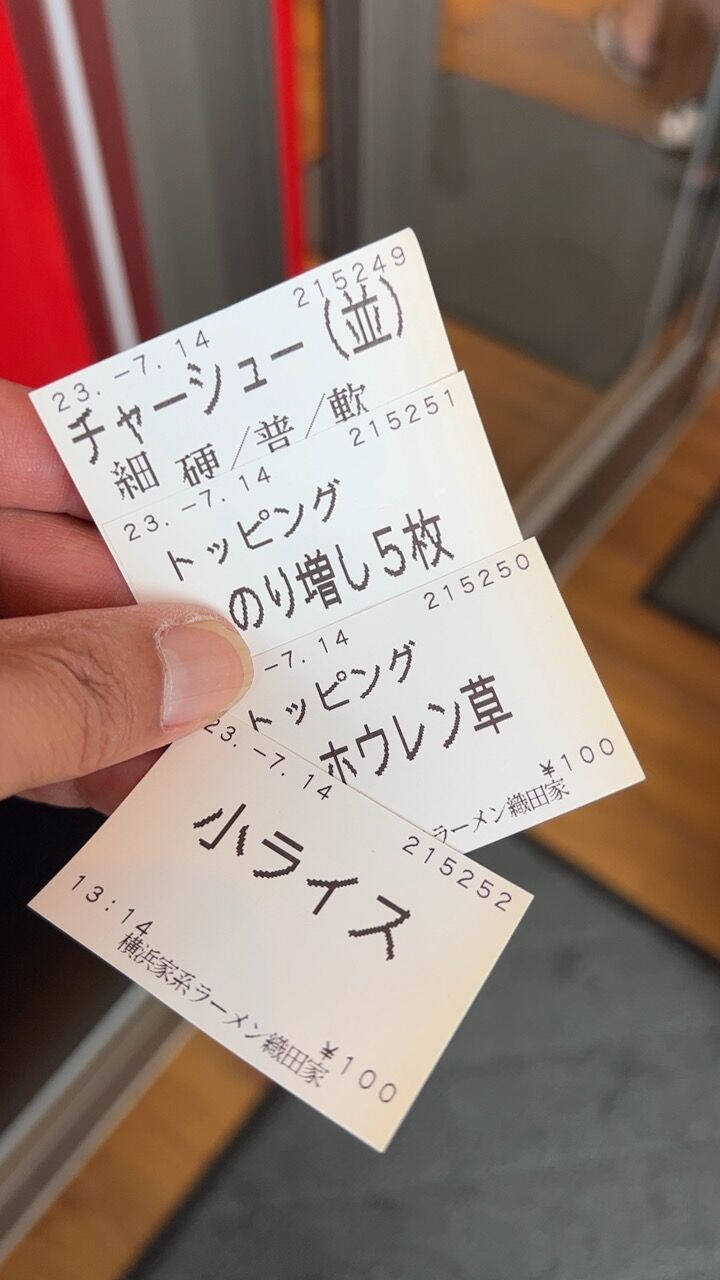 215249
23.-7.14
チャーシュー(並)
細 硬/普/軟
215251
23.-7.14
トッピング
のり増し5枚
215250
-7.14
トッピング
ホウレン草
¥100
ラーメン織田家
23.-7.14
215252
小ライス
13:14
横浜家系ラーメン織田家
¥100